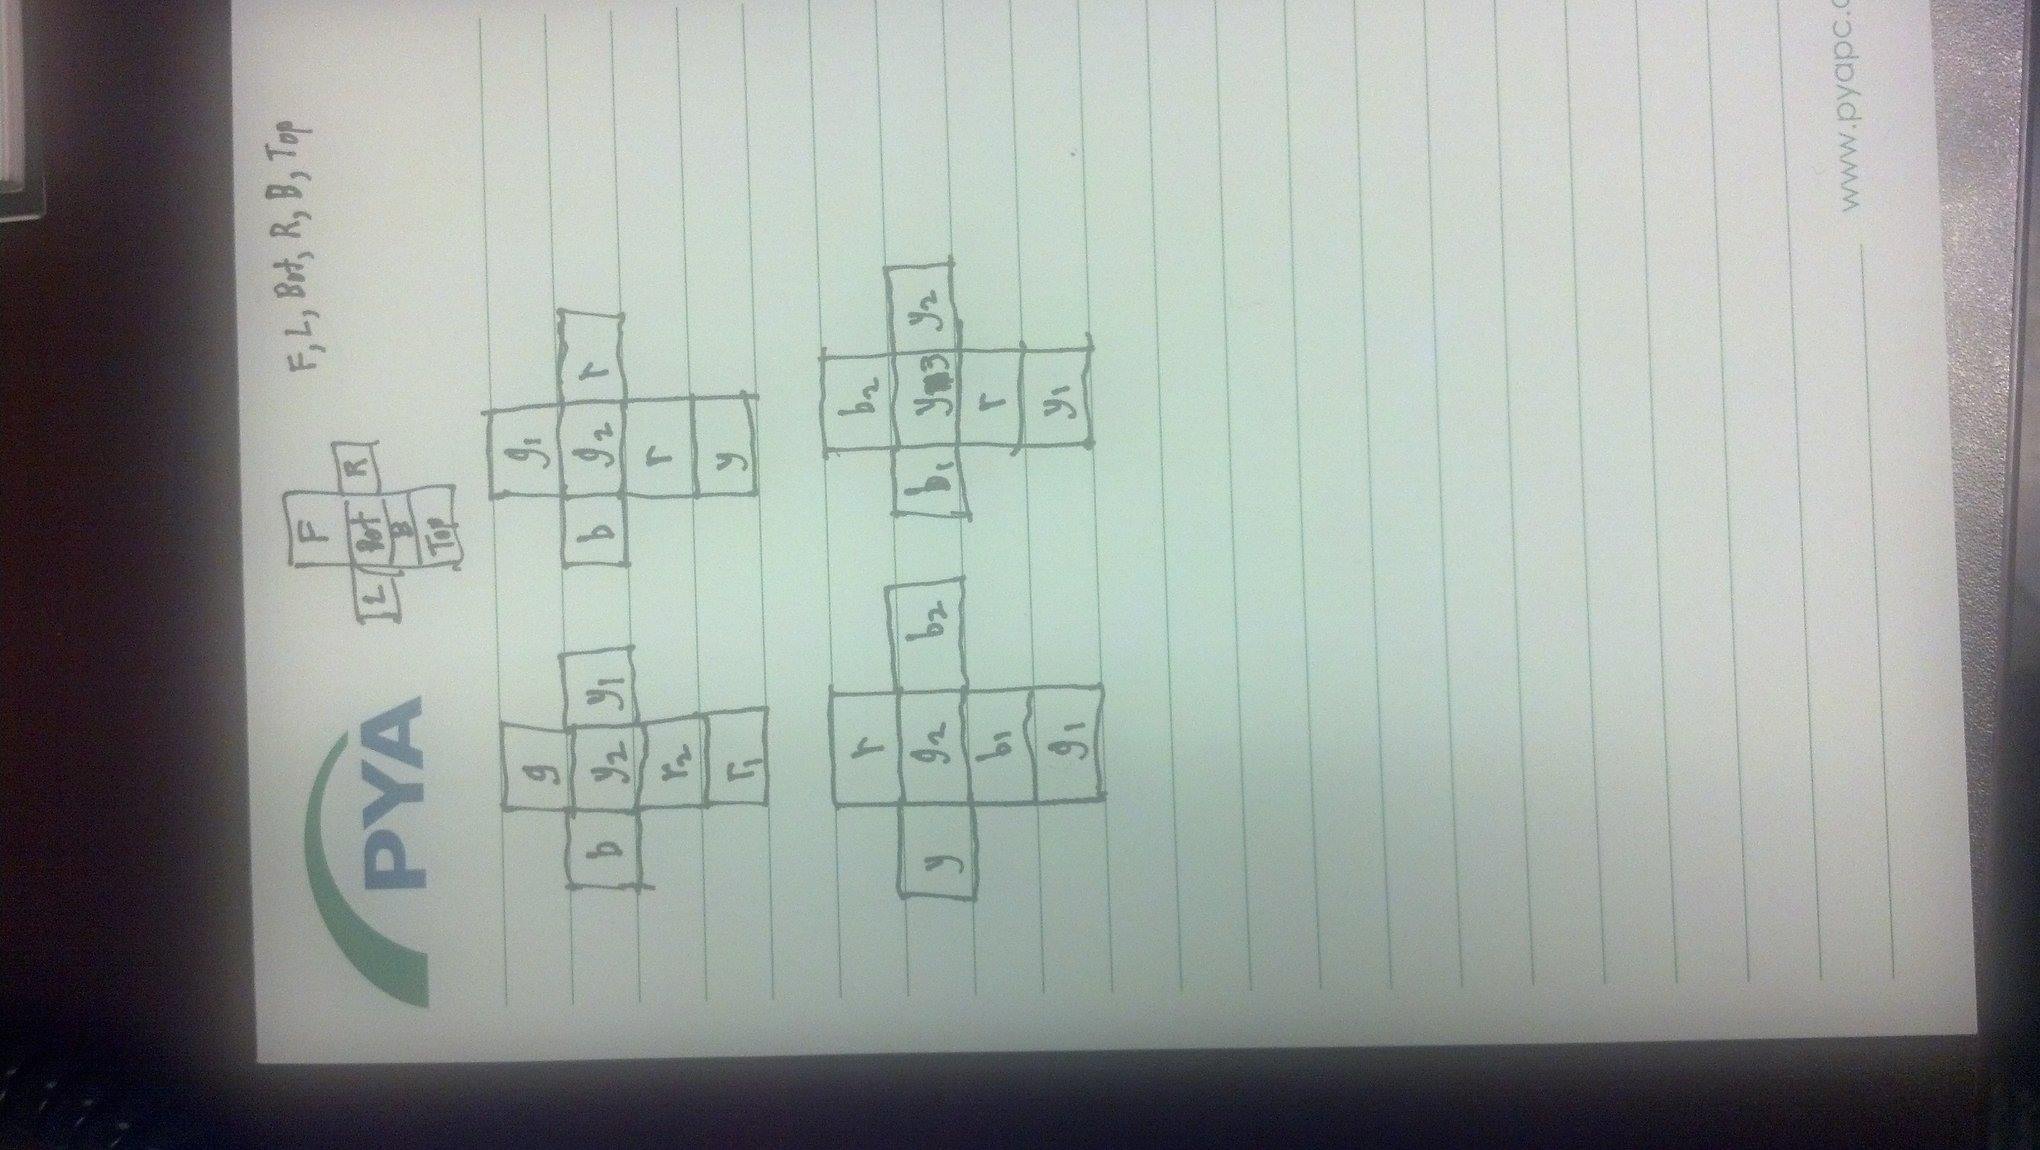 PYA
F
L Bot R
B
Top
F, L, Bot, R, B, Top
g
b y2 y1
r2
r1
g1
b g2 r
r
y
r
y g2 b2
b1
g1
b2
b1 y3 y2
r
y1
www.pyapc.